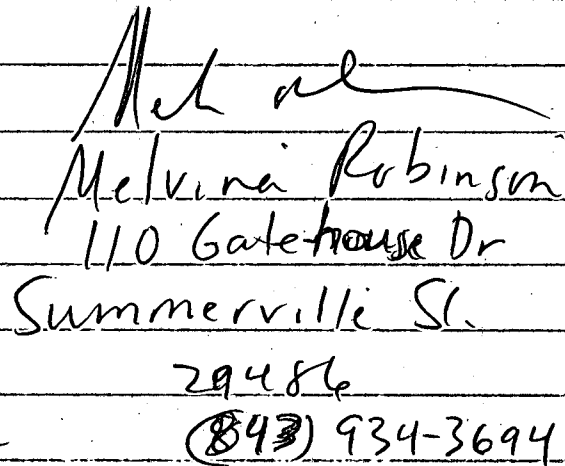 Melvina Robinson
110 Gatehouse Dr
Summerville SC.
29486
(843) 934-3694